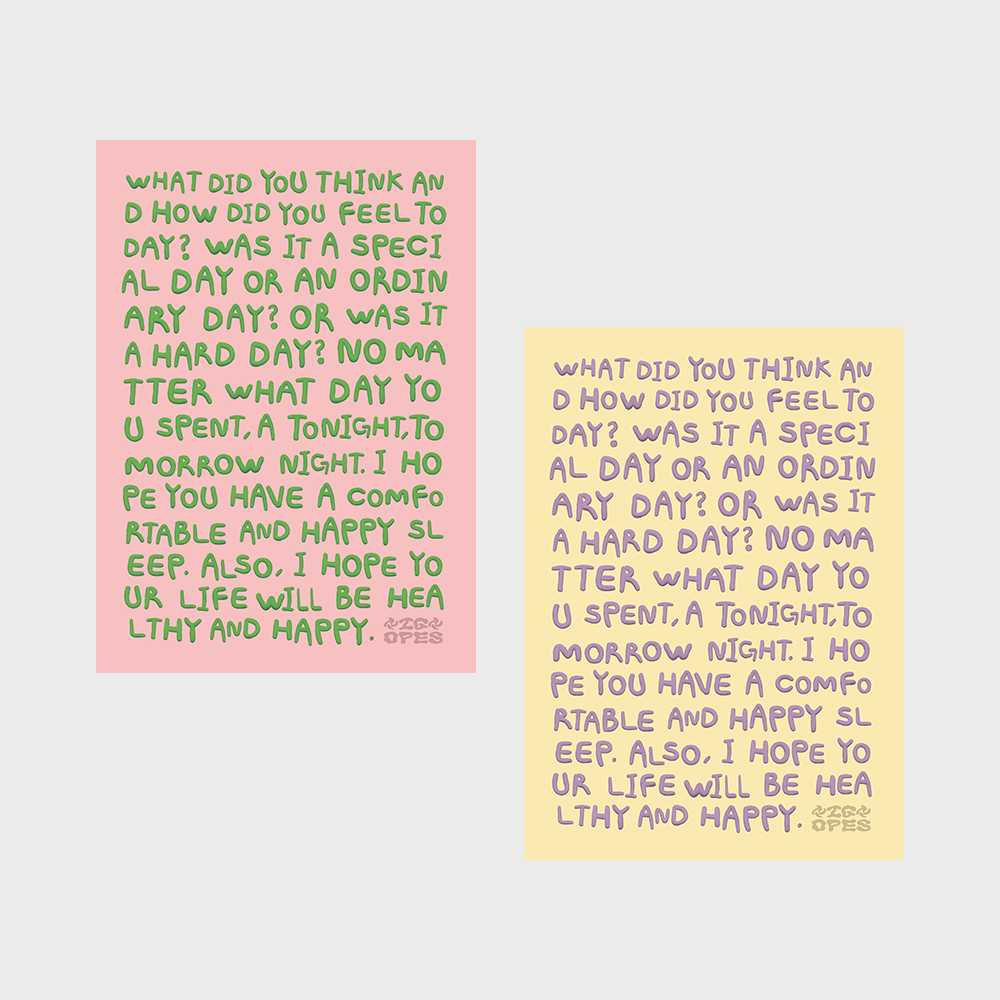 WHAT DID YOU THINK AN
D HOW DID YOU FEEL TO
DAY? WAS IT A SPECI
AL DAY OR AN ORDIN
ARY DAY? OR WAS IT
A HARD DAY? NO MA
TTER WHAT DAY YO
U SPENT, A TONIGHT, TO
MORROW NIGHT. I HO
PE YOU HAVE A COMFO
RTABLE AND HAPPY SL
EEP. ALSO, I HOPE YO
UR LIFE WILL BE HEA
LTHY AND HAPPY.
OPES
WHAT DID YOU THINK AN
D HOW DID YOU FEEL TO
DAY? WAS IT A SPECI
AL DAY OR AN ORDIN
ARY DAY? OR WAS IT
A HARD DAY? NO MA
TTER WHAT DAY YO
U SPENT, A TONIGHT, TO
MORROW NIGHT. I HO
PE YOU HAVE A COMFO
RTABLE AND HAPPY SL
EEP. ALSO, I HOPE YO
UR LIFE WILL BE HEA
LTHY AND HAPPY.
OPES